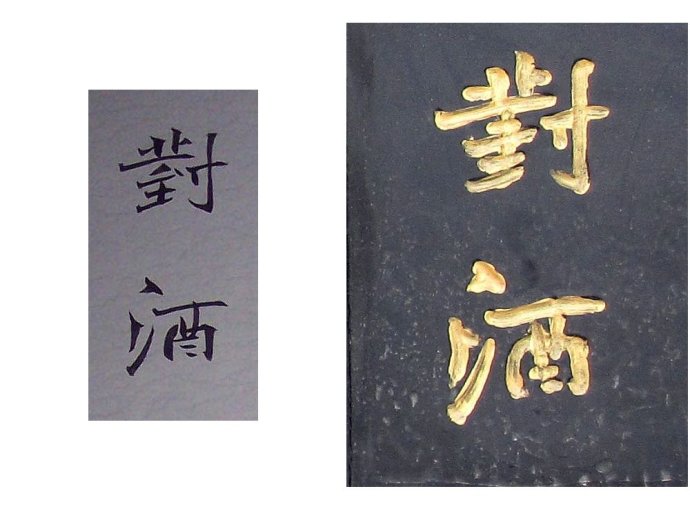 對酒
對酒